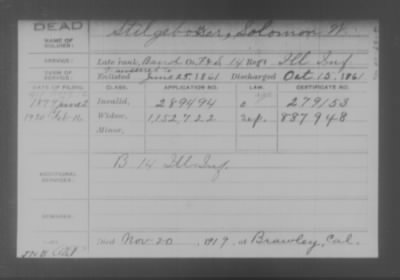 DEAD
NAME OF SOLDIER: Stilgebouer, Solomon W.
SERVICE: Late rank, Band 14 Regt Ill Inf
TERM OF SERVICE: Enlisted June 25, 1861 Discharged Oct 15, 1861
DATE OF FILING. CLASS. APPLICATION NO. LAW. CERTIFICATE NO.
1879 June 2 Invalid, 289494 279153
1920 Feb 16 Widow, 1,152,722 887948
Minor,
ADDITIONAL SERVICES. B 14 Ill Inf.
REMARKS.
Died Nov 20, 1919, at Brawley, Cal.